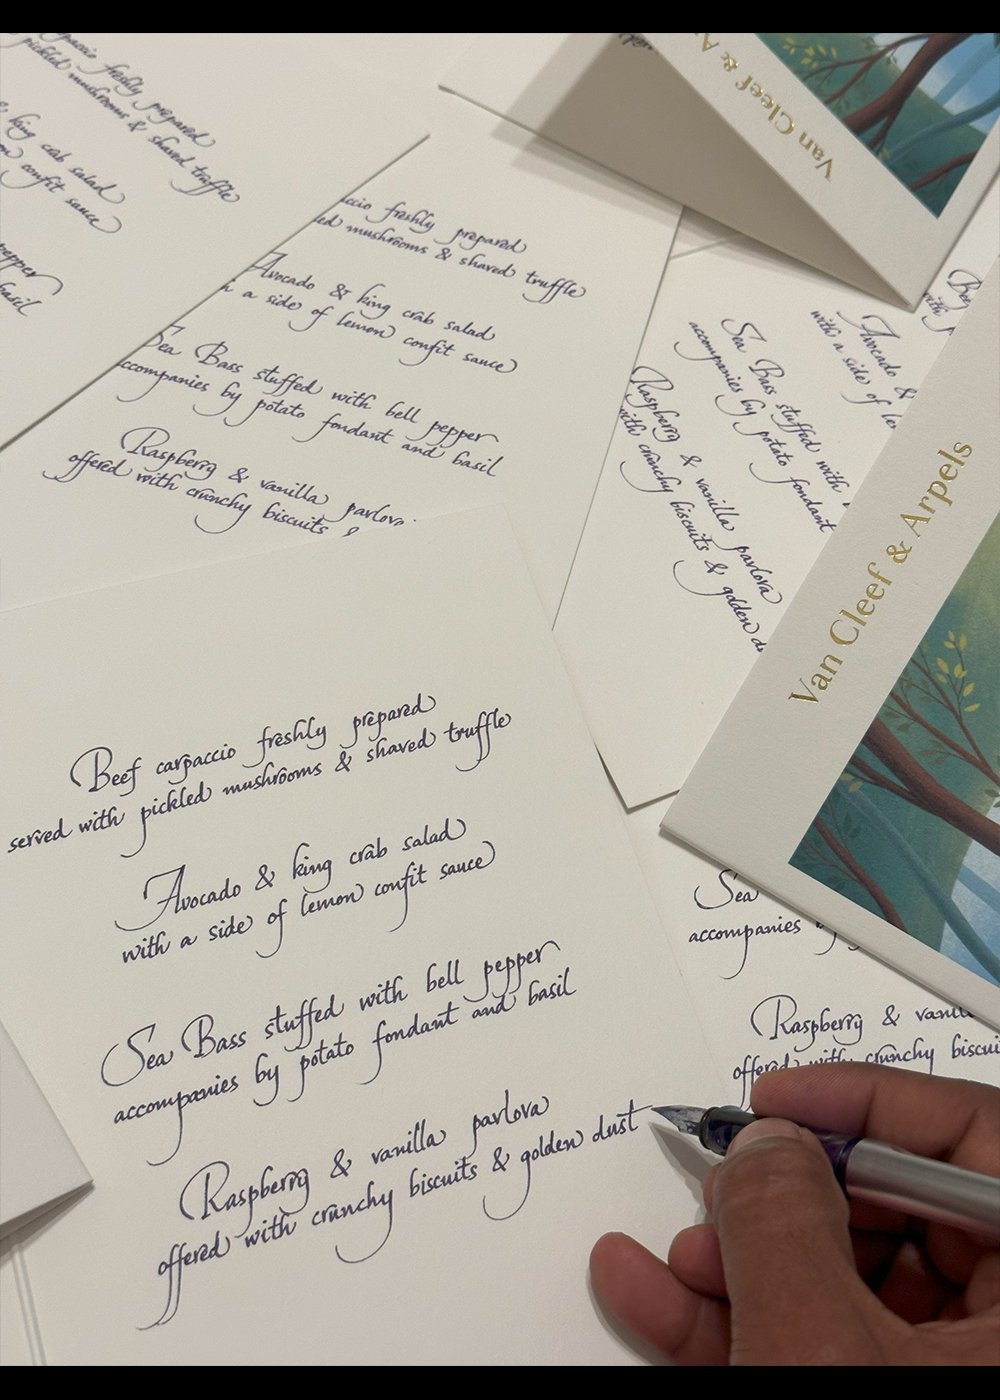 freshly prepared
pickled mushrooms & shaved truffle
king crab salad
confit sauce
pepper
basil
freshly prepared
mushrooms & shaved truffle
Avocado & king crab salad
a side of lemon confit sauce
Sea Bass stuffed with bell pepper
accompanies by potato fondant and basil
Raspberry & vanilla pavlova
offered with crunchy biscuits &
Van Cleef & A
Avocado &
with a side of le
Sea Bass stuffed with
accompanies by potato fondant
Raspberry & vanilla pavlova
with crunchy biscuits & golden du
Van Cleef & Arpels
Beef carpaccio freshly prepared
served with pickled mushrooms & shaved truffle
Avocado & king crab salad
with a side of lemon confit sauce
Sea Bass stuffed with bell pepper
accompanies by potato fondant and basil
Raspberry & vanilla pavlova
offered with crunchy biscuits & golden dust
Sea
accompanies
Raspberry & vanil
offered with crunchy biscui